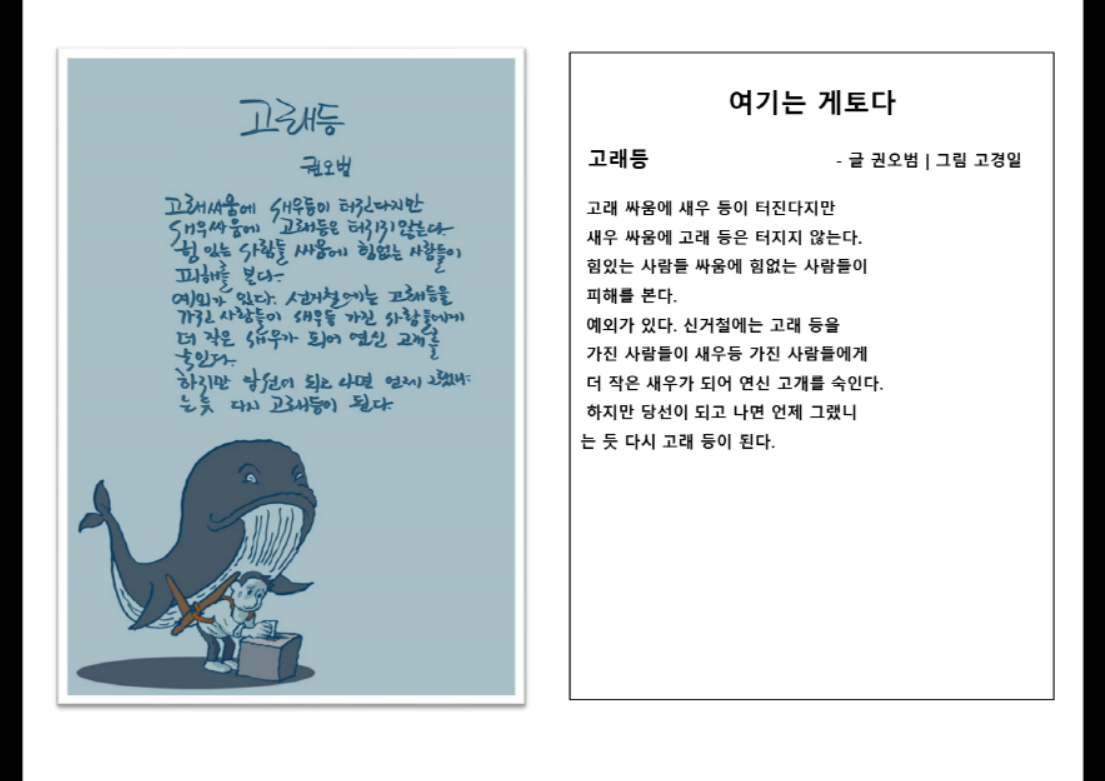 고래등
권오범
고래싸움에 새우등이 터진다지만
새우싸움에 고래등은 터지지 않는다.
힘 있는 사람들 싸움에 힘없는 사람들이
피해를 본다.
예외가 있다. 선거철에는 고래등을
가진 사람들이 새우등 가진 사람들에게
더 작은 새우가 되어 연신 고개를
숙인다.
하지만 당선이 되고 나면 언제 그랬냐
는 듯 다시 고래등이 된다.
여기는 게토다
고래등 - 글 권오범 | 그림 고경일
고래 싸움에 새우 등이 터진다지만
새우 싸움에 고래 등은 터지지 않는다.
힘있는 사람들 싸움에 힘없는 사람들이
피해를 본다.
예외가 있다. 신거철에는 고래 등을
가진 사람들이 새우등 가진 사람들에게
더 작은 새우가 되어 연신 고개를 숙인다.
하지만 당선이 되고 나면 언제 그랬니
는 듯 다시 고래 등이 된다.